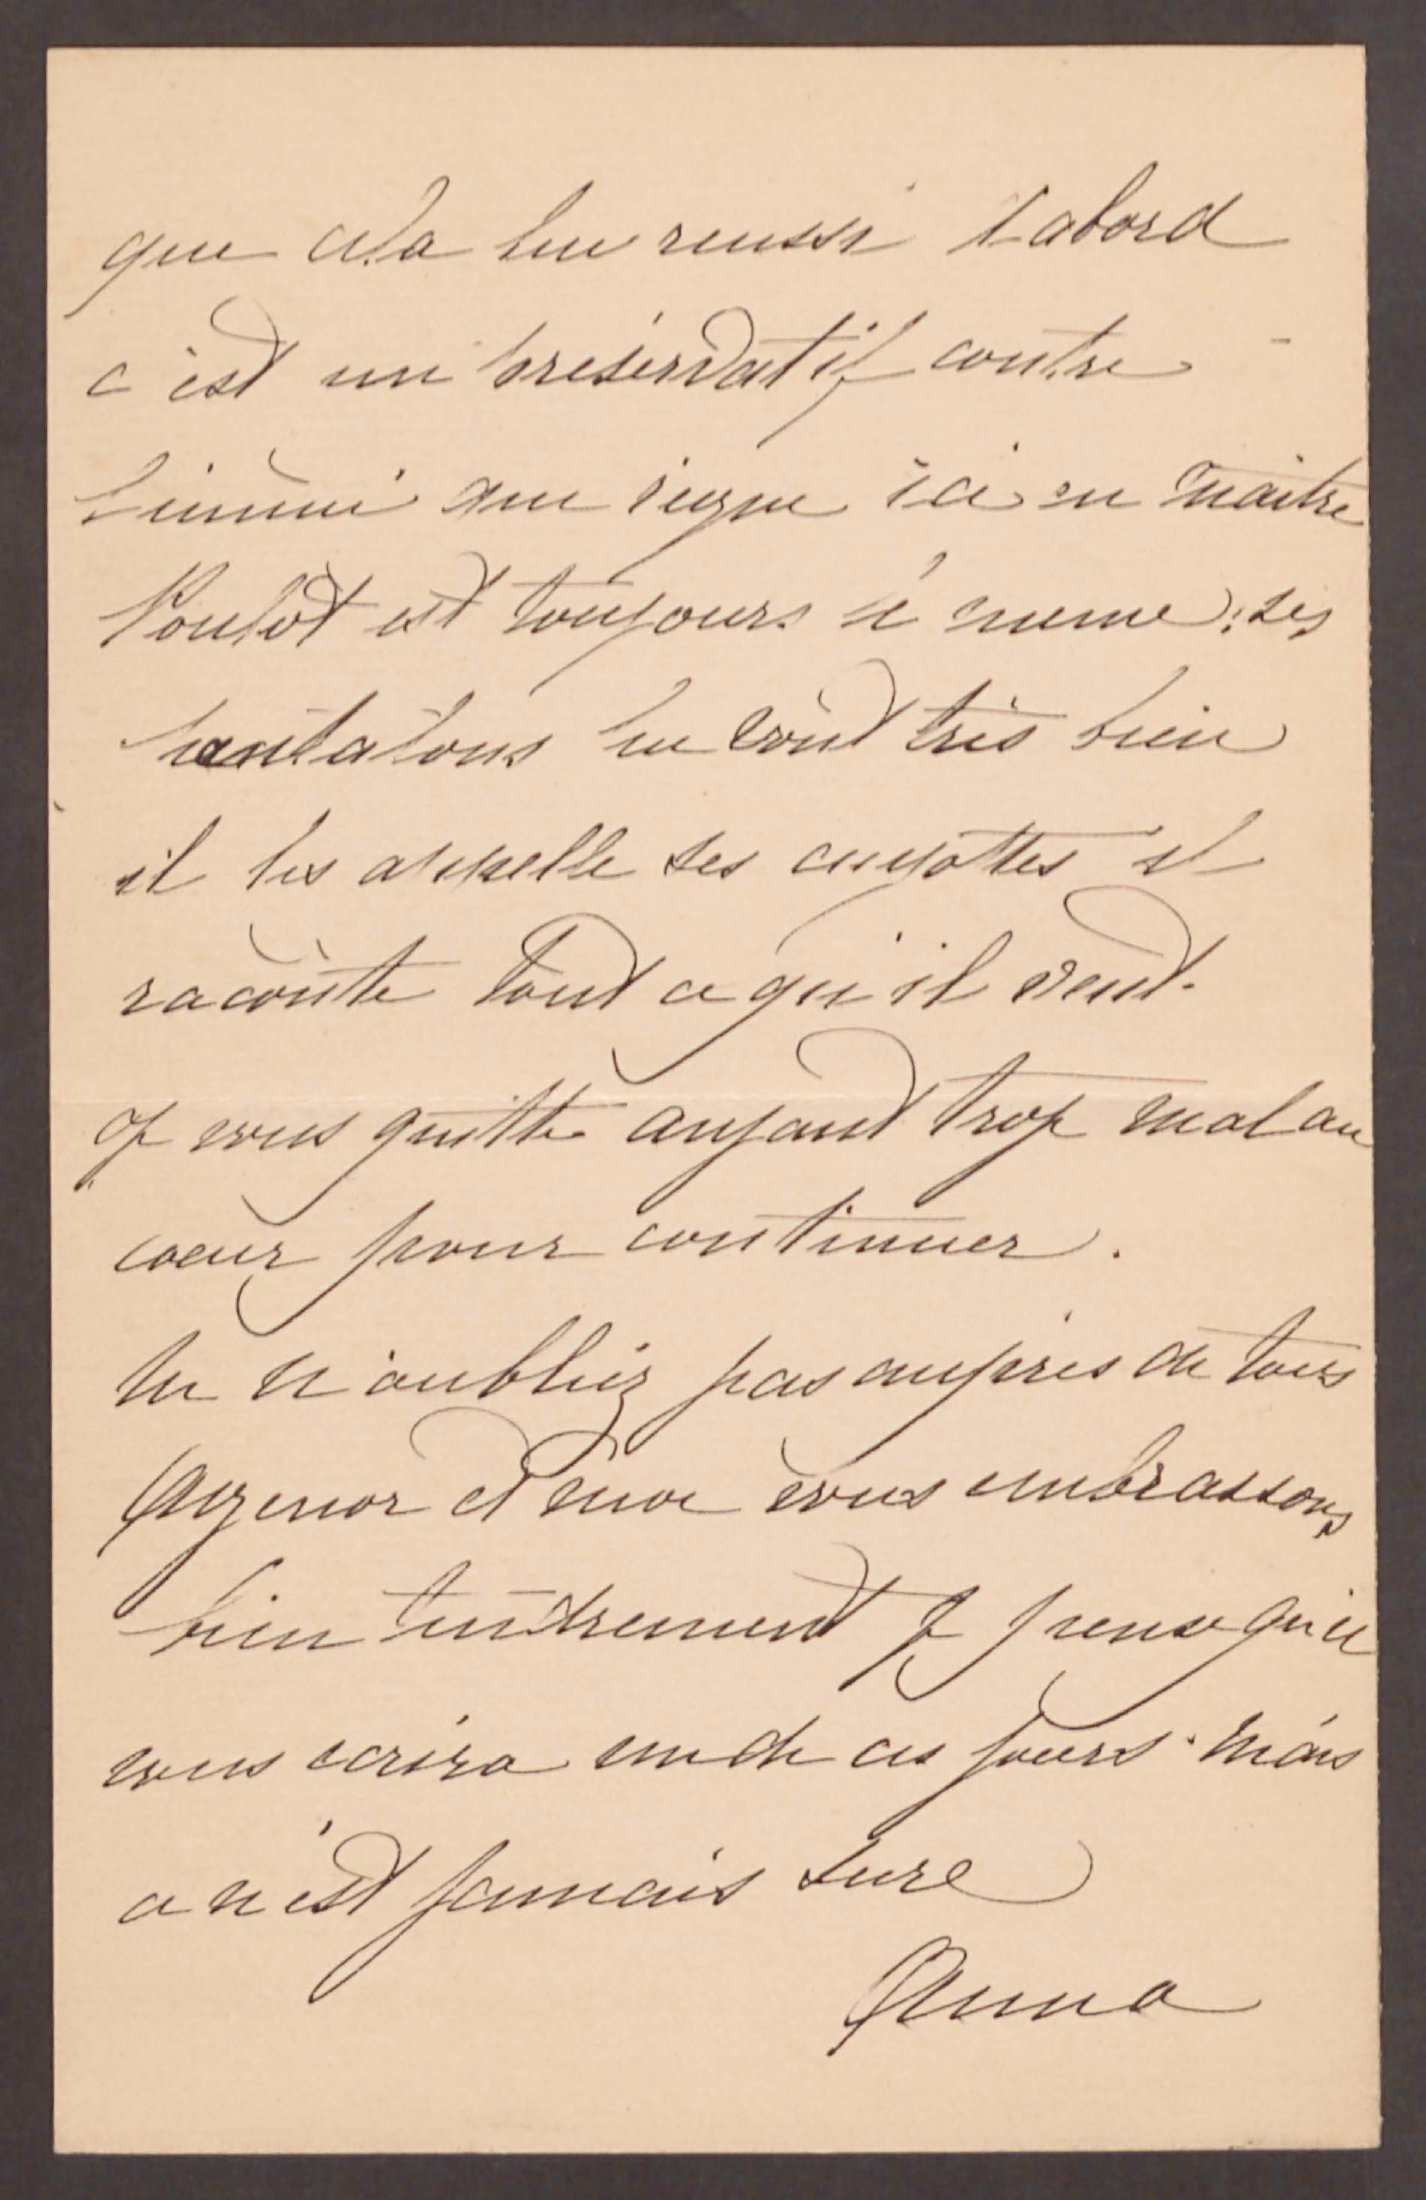 que cela lui reussi d'abord
c'est un préservatif contre
l'ennui qui regne ici en maitre
Poulot est toujours le meme, ses
pantalons lui vont très bien
il les appelle ses culottes il
raconte tout ce qu'il veut.
Je vous quitte ayant trop mal au
coeur pour continuer.
Ne n'oubliez pas aupres de tous
Agenor et moi vous embrassons
bien tendrement Je pense qu'il
vous ecrira un de ces jours. Mais
ce n'est jamais sure
Anna